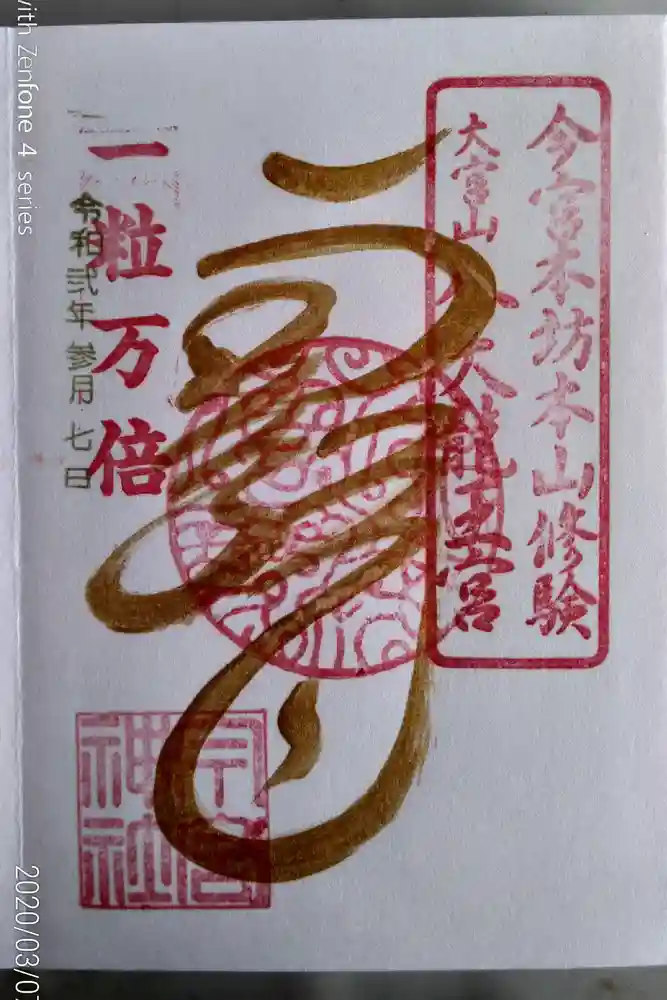 今宮本坊本山修験
大宮山八大龍王宮
一粒万倍
令和弐年参月七日
今宮神社
with Zenfone 4 series
2020/03/07